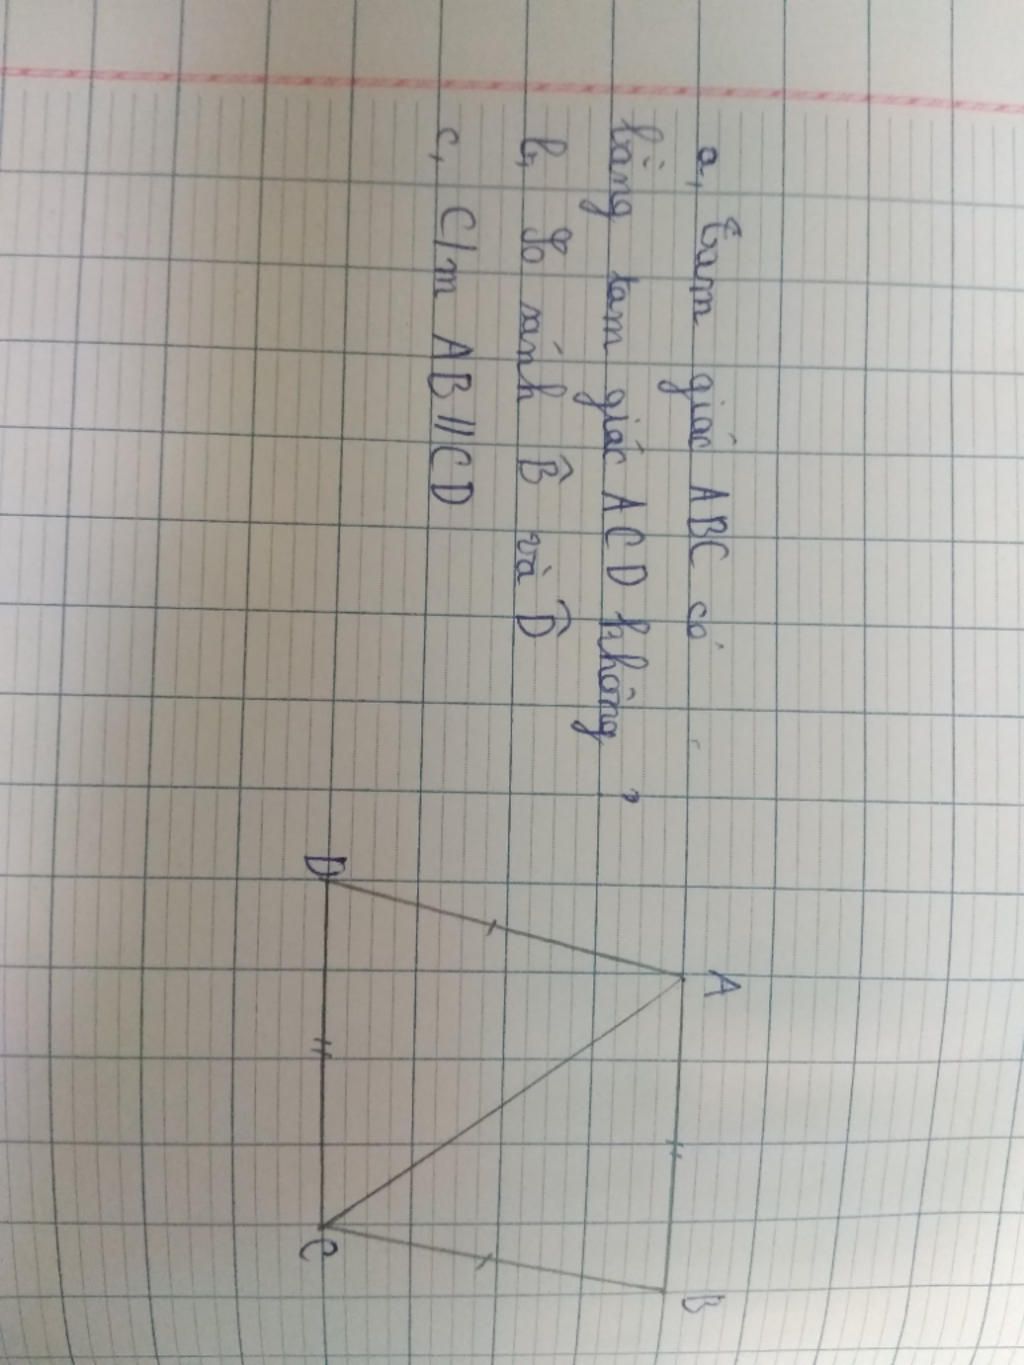 a, Tam giác ABC có
bằng tam giác ACD không?
b, So sánh B̂ và D̂
c, C/m AB // CD
A
B
D
C